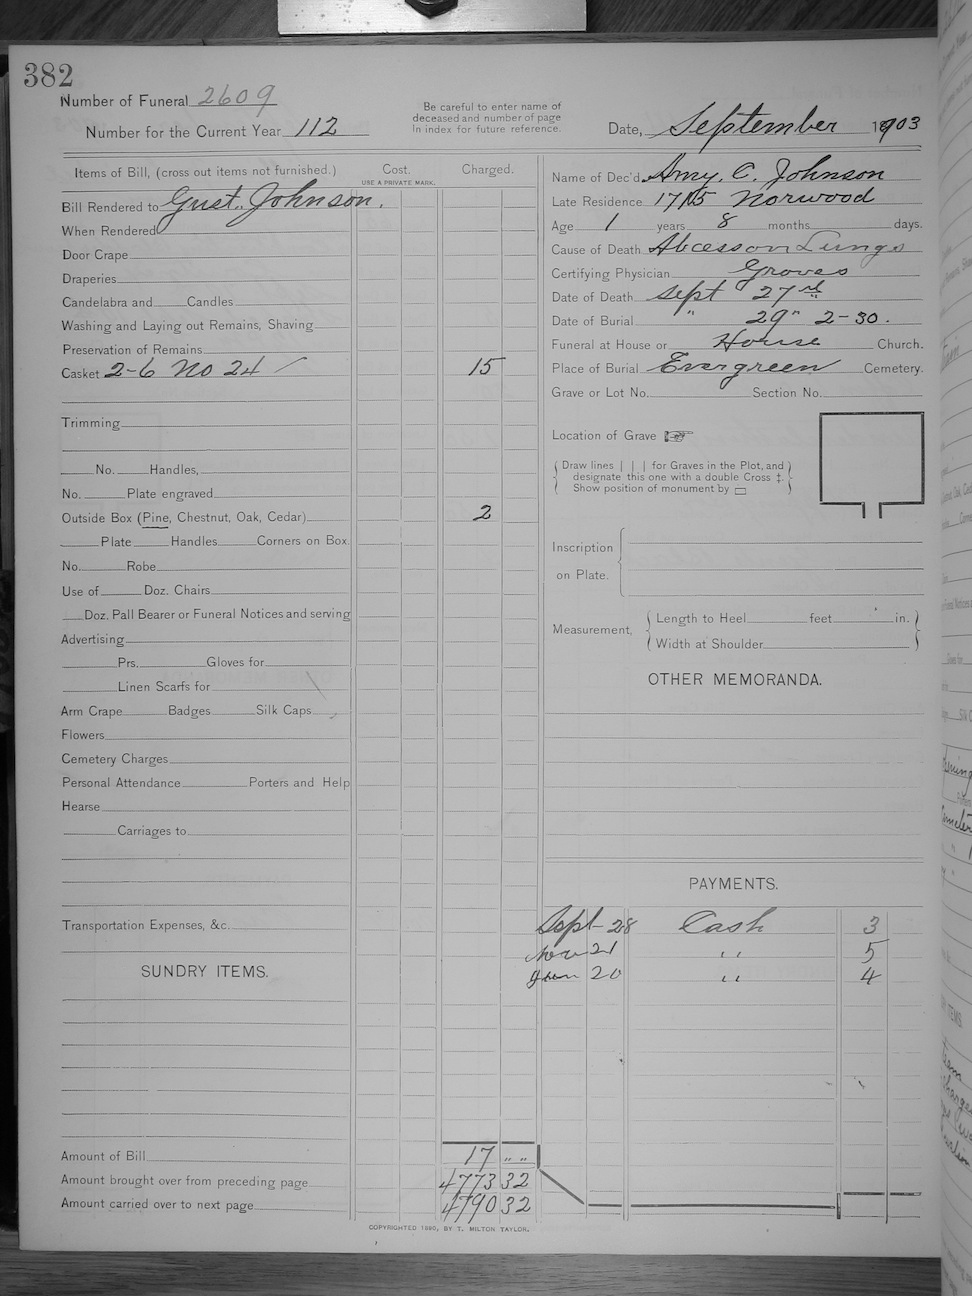 382
Number of Funeral 2609
Number for the Current Year 112
Be careful to enter name of
deceased and number of page
in index for future reference.
Date, September 1903
Items of Bill, (cross out items not furnished.)
Cost.
USE A PRIVATE MARK.
Charged.
Bill Rendered to Gust. Johnson.
When Rendered
Door Crape
Draperies
Candelabra and Candles
Washing and Laying out Remains, Shaving
Preservation of Remains
Casket 2-6 No 24 15
Trimming
No. Handles,
No. Plate engraved
Outside Box (Pine, Chestnut, Oak, Cedar) 2
Plate Handles Corners on Box.
No. Robe
Use of Doz. Chairs
Doz. Pall Bearer or Funeral Notices and serving
Advertising
Prs. Gloves for
Linen Scarfs for
Arm Crape Badges Silk Caps
Flowers
Cemetery Charges
Personal Attendance Porters and Help
Hearse
Carriages to
Transportation Expenses, &c.
SUNDRY ITEMS.
Amount of Bill 17 " "
Amount brought over from preceding page 4773 32
Amount carried over to next page 4790 32
Name of Dec'd Amy. C. Johnson
Late Residence 1715 Norwood
Age 1 years 8 months days.
Cause of Death Abcess on Lungs
Certifying Physician Groves
Date of Death Sept 27th
Date of Burial " 29" 2-30.
Funeral at House or House Church.
Place of Burial Evergreen Cemetery.
Grave or Lot No. Section No.
Location of Grave
Draw lines | | | for Graves in the Plot, and
designate this one with a double Cross ‡.
Show position of monument by ▭
Inscription
on Plate.
Measurement,
Length to Heel feet in.
Width at Shoulder
OTHER MEMORANDA.
PAYMENTS.
Sept 28 Cash 3
Nov 21 " 5
Jan 20 " 4
COPYRIGHTED 1880, BY T. MILTON TAYLOR.